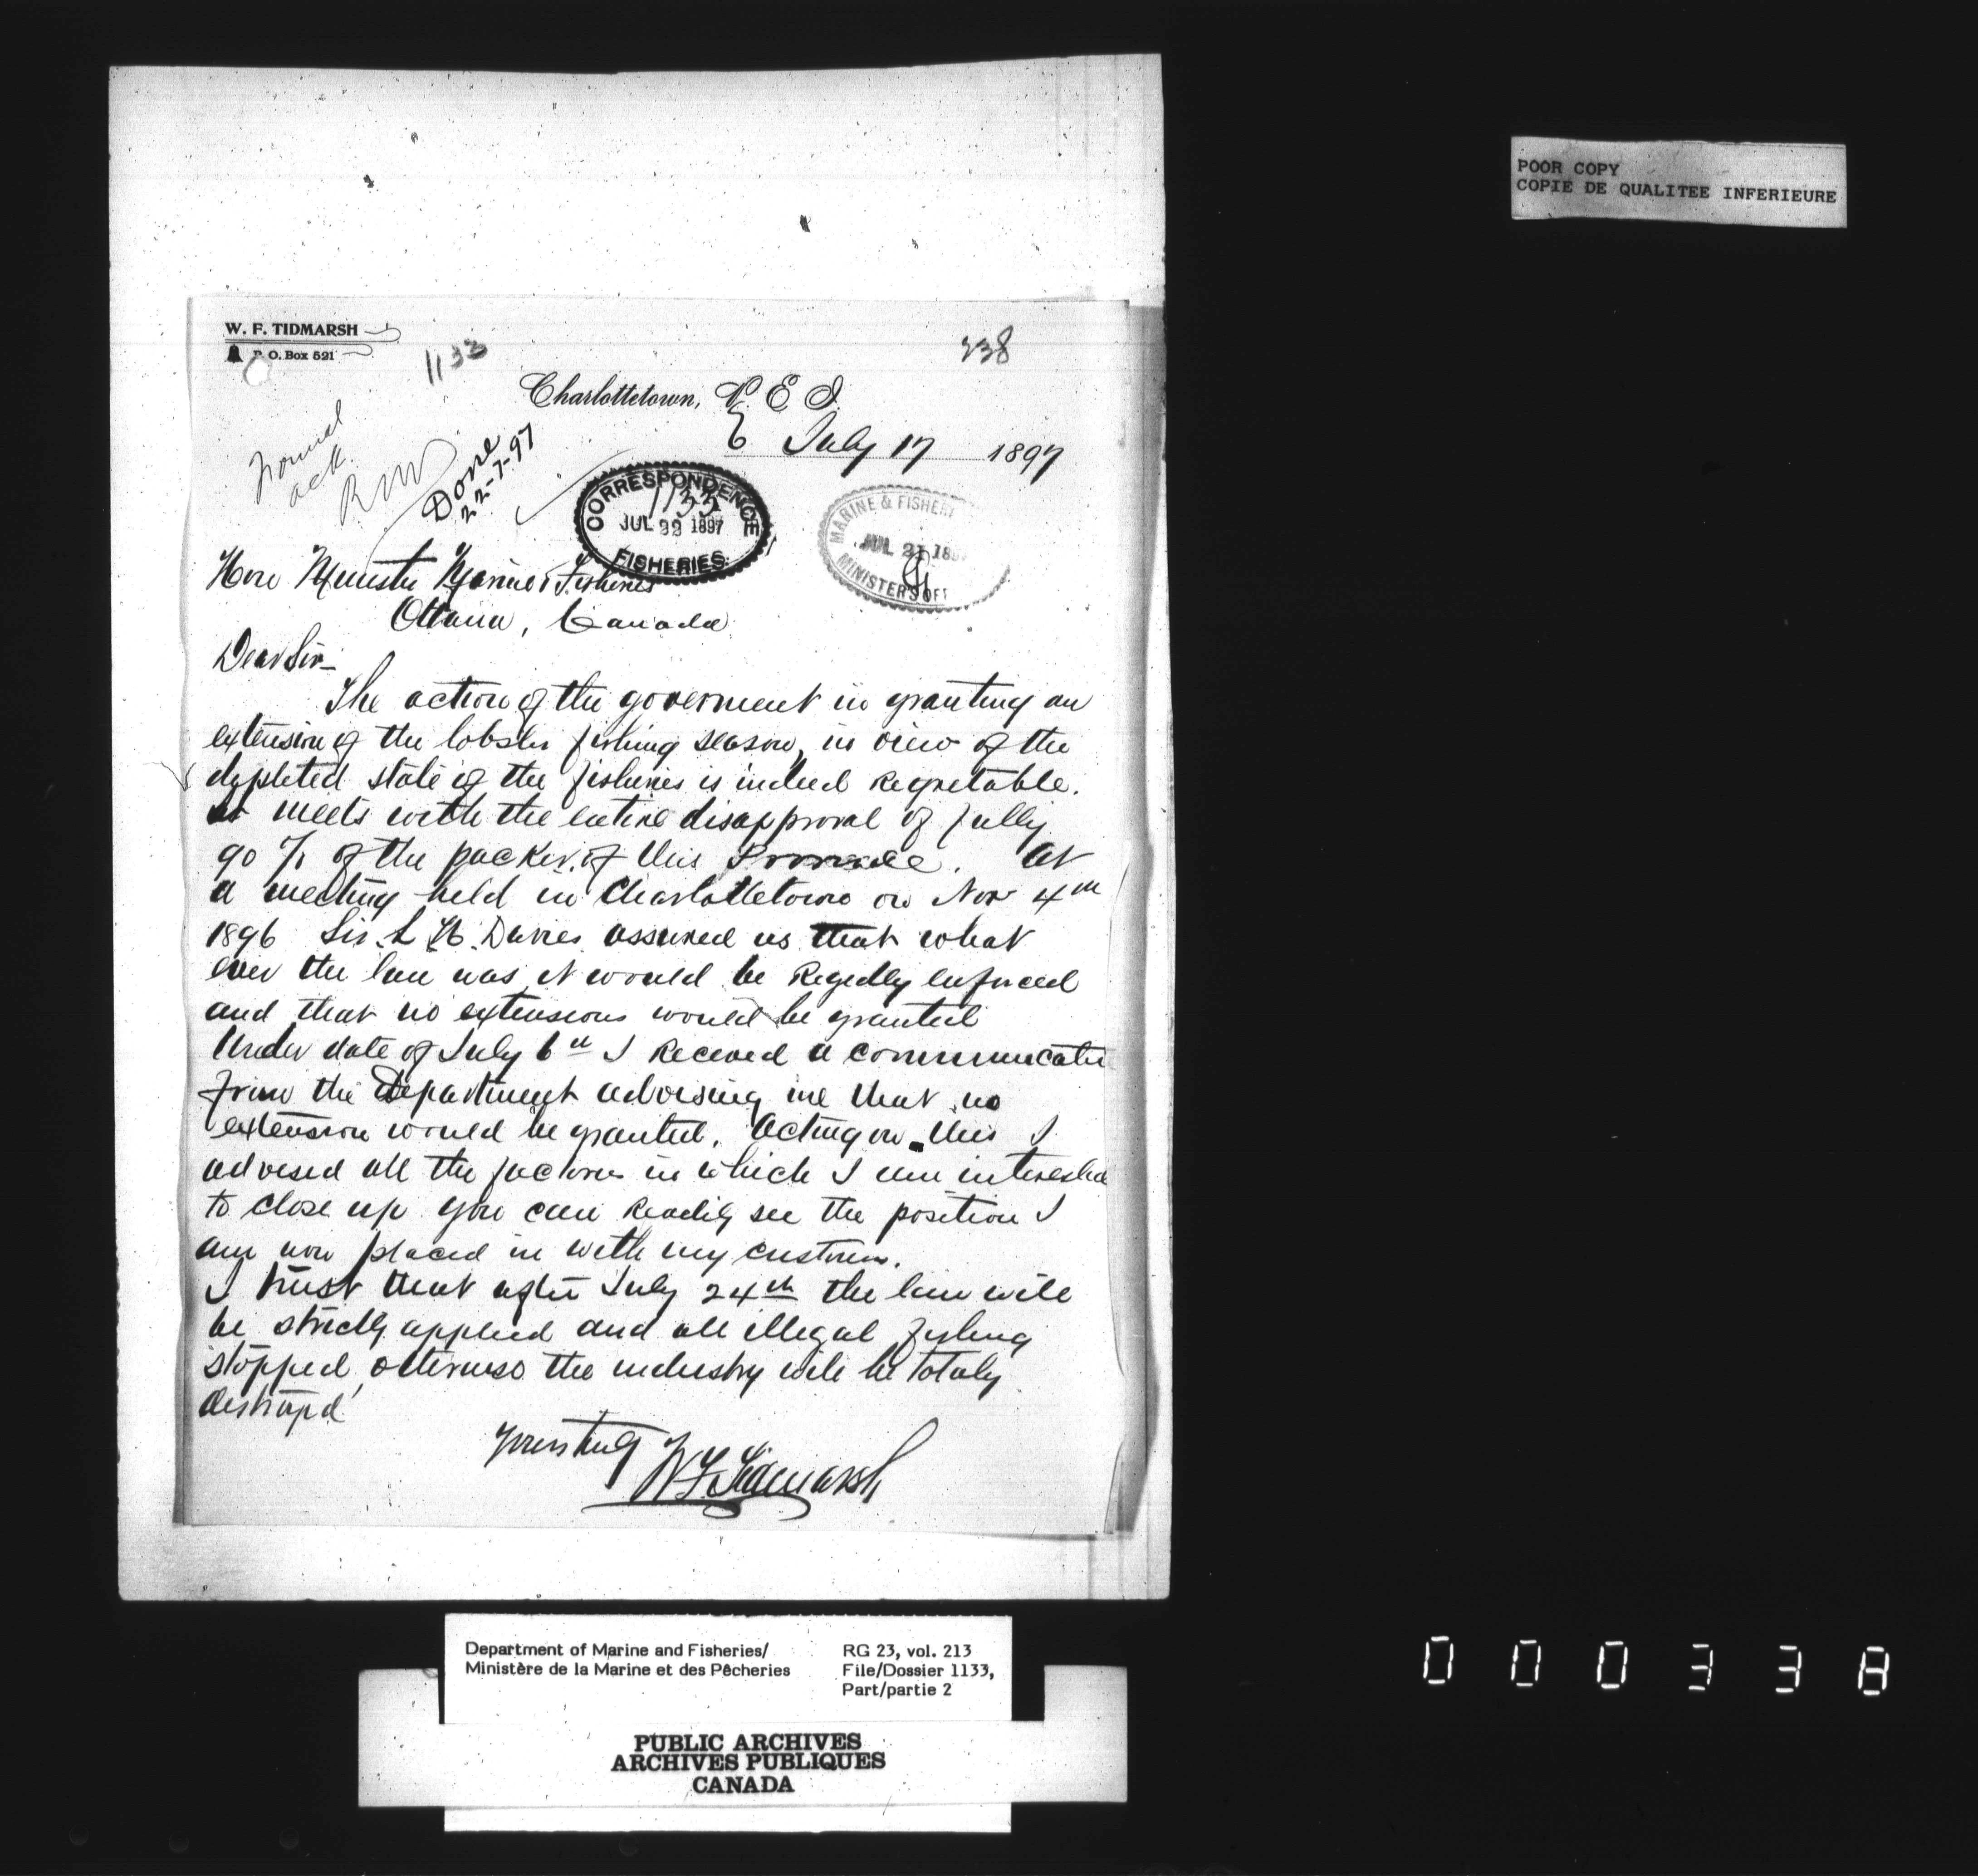 POOR COPY
COPIE DE QUALITEE INFERIEURE
W. F. TIDMARSH
P. O. Box 521
1133
338
Charlottetown, P. E. I.
July 17 1897
ack.
Done
22-7-97
CORRESPONDENCE
1133
JUL 22 1897
FISHERIES
MARINE & FISHERI
JUL 21 189
MINISTERS OFF
Hon Minister Marine & Fisheries
Ottawa, Canada
Dear Sir -
The action of the goverment in granting an
extension of the lobster fishing season, in view of the
depleted state of the fisheries is indeed Regretable.
It meets with the entire disapproval of fully
90 % of the packers of this Province. At
a meeting held in Charlottetown on Nov 4th
1896 Sir. L H. Davies assured us that what
ever the law was, it would be Regedly enforced
and that no extensions would be granted
Under date of July 6th I Received a communicatio
from the Department advising me that no
extension would be granted. Acting on this I
advised all the factories in which I am interested
to close up you can Readily see the position I
am now placed in with my customers.
I trust that after July 24th the law will
be strictly applied and all illegal fishing
stopped, otherwise the industry will be totaly
destroyed
Yours truly
W F Tidmarsh
Department of Marine and Fisheries/
Ministère de la Marine et des Pêcheries
RG 23, vol. 213
File/Dossier 1133,
Part/partie 2
PUBLIC ARCHIVES
ARCHIVES PUBLIQUES
CANADA
000338